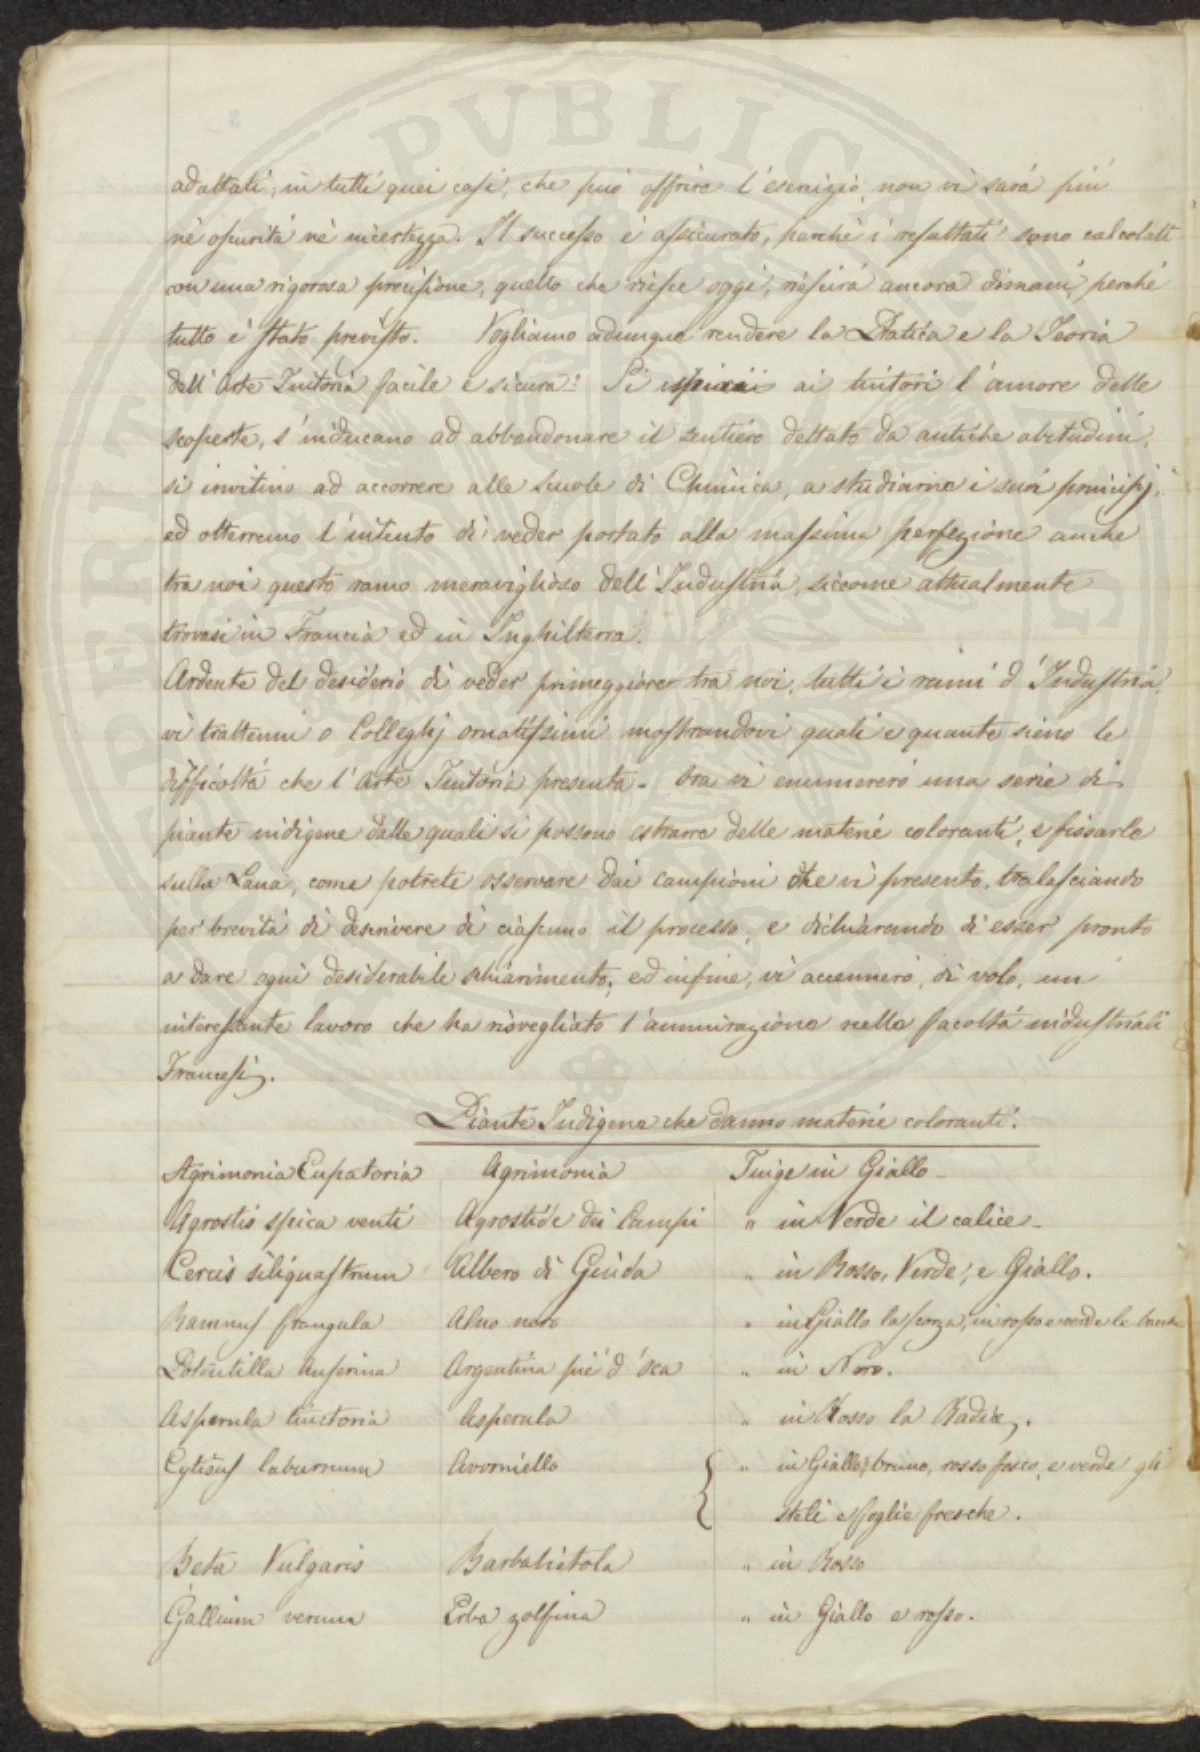 adattati; in tutti quei casi, che può offrire l'esercizio, non vi sarà più
nè oscurità nè incertezza. Il successo è assicurato, perchè i resultati sono calcolati
con una rigorosa precisione, quello che riesce oggi, riescirà ancora dimani, perchè
tutto è stato previsto. Vogliamo adunque rendere la Pratica e la Teoria
dell'Arte Tintoria facile e sicura: Si ai tintori l'amore delle
scoperte, s'inducano ad abbandonare il sentiero dettato da antiche abitudini,
si invitino ad accorrere alle Scuole di Chimica, a studiarne i suoi principj,
ed otterremo l'intento di veder portato alla massima perfezione anche
tra noi questo ramo meraviglioso dell'Industria, siccome attualmente
trovasi in Francia ed in Inghilterra.
Ardente del desiderio di veder primeggiare tra noi, tutti i rami d'Industria,
vi trattenni o Colleghj ornatissimi mostrandovi quali e quante sieno le
difficoltà che l'Arte Tintoria presenta. Ora vi enumererò una serie di
piante indigene dalle quali si possono estrarre delle materie coloranti, e fissarle
sulla Lana, come potrete osservare dai campioni che vi presento, tralasciando
per brevità di descrivere di ciascuno il processo, e dichiarando di esser pronto
a dare ogni desiderabile schiarimento, ed infine, vi accennerò, di volo, un
interessante lavoro che ha risvegliato l'ammirazione nelle facoltà industriali
Francesi.
Piante Indigene che danno materie coloranti.
Agrimonia Eupatoria Agrimonia Tinge in Giallo
Agrostis spica venti Agrostide dei Campi " in Verde il calice
Cercis siliquastrum Albero di Giuda " in Rosso, Verde, e Giallo.
Ramnus frangula Alno nero " in Giallo la scorza, in rosso e verde le bacche
Potentilla Anserina Argentina piè d'oca " in Nero.
Asperula tinctoria Asperula " in Rosso la Radice.
Cytisus laburnum Avorniello " in Giallo, bruno, rosso fosco, e verde gli
steli e foglie fresche.
Beta Vulgaris Barbabietola " in Rosso
Gallium verum Erba zolfina " in Giallo e rosso.